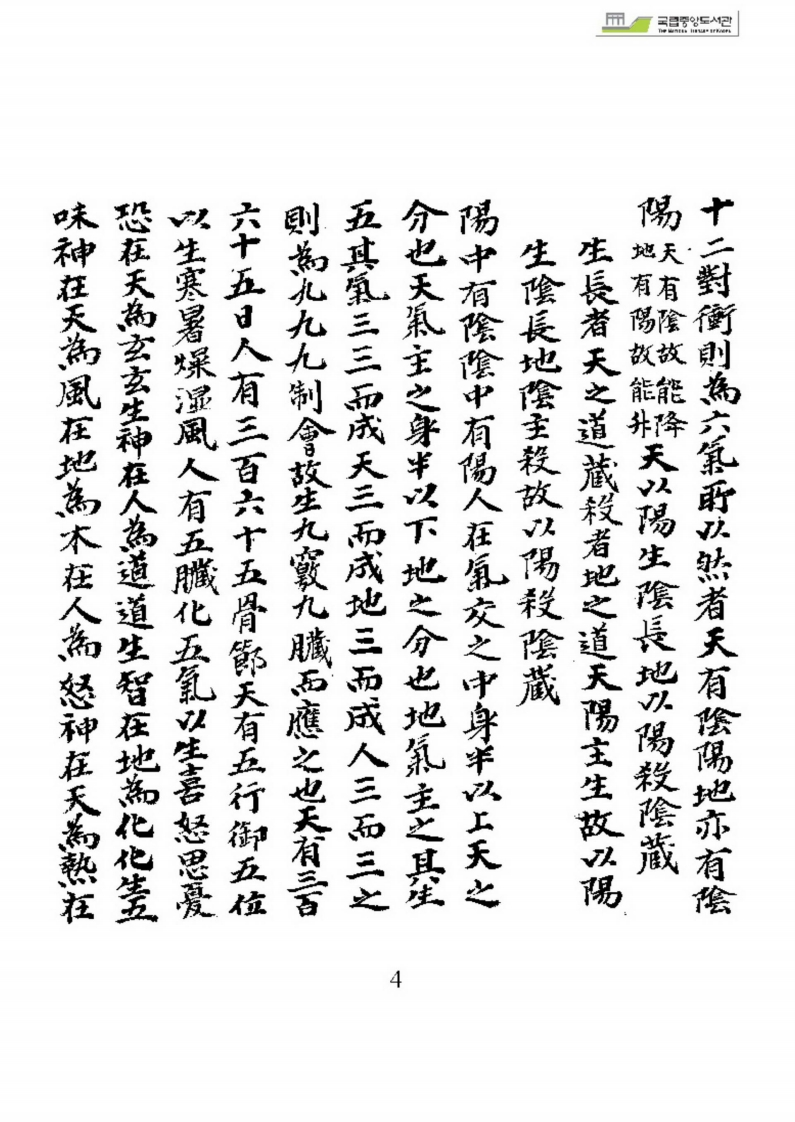 국립중앙도서관
THE NATIONAL LIBRARY OF KOREA
十二對衝則為六氣所以然者天有陰陽地亦有陰
陽天有陰故能降地有陽故能升天以陽生陰長地以陽殺陰蔵
生長者天之道蔵殺者地之道天陽主生故以陽
生陰長地陰主殺故以陽殺陰蔵
陽中有陰陰中有陽人在氣交之中身半以上天之
分也天氣主之身半以下地之分也地氣主之其生
五其氣三三而成天三而成地三而成人三而三之
則為九九九制會故生九竅九臟而應之也天有三百
六十五日人有三百六十五骨節天有五行御五位
以生寒暑燥湿風人有五臟化五氣以生喜怒思憂
恐在天為玄玄生神在人為道道生智在地為化化生五
味神在天為風在地為木在人為怒神在天為熱在
4